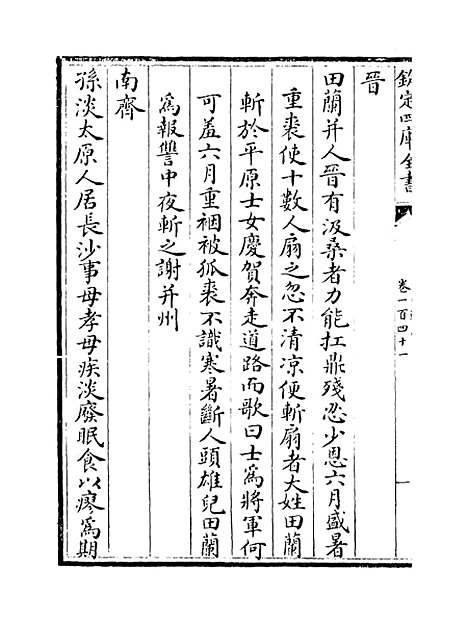 欽定四庫全書
卷一百四十一
晉
田蘭并人晉有汲桑者力能扛鼎殘忍少恩六月盛暑
重裘使十數人扇之忽不清凉便斬扇者大姓田蘭
斬於平原士女慶賀奔走道路而歌曰士為將軍何
可羞六月重裀被狐裘不識寒暑斷人頭雄兒田蘭
為報讐中夜斬之謝并州
南齊
孫淡太原人居長沙事母孝母疾淡廢眠食以瘳為期